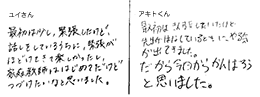 ユイさん
最初は少し、緊張したけど、
話しをしているうちに、緊張が
ほどけてきて楽しかったし、
家庭教師ははじめてだけど
つづけたいなと思いました。
アキトくん
最初は
先生がはなしているとき
が出てきました。
だから今日からがんばろう
と思いました。